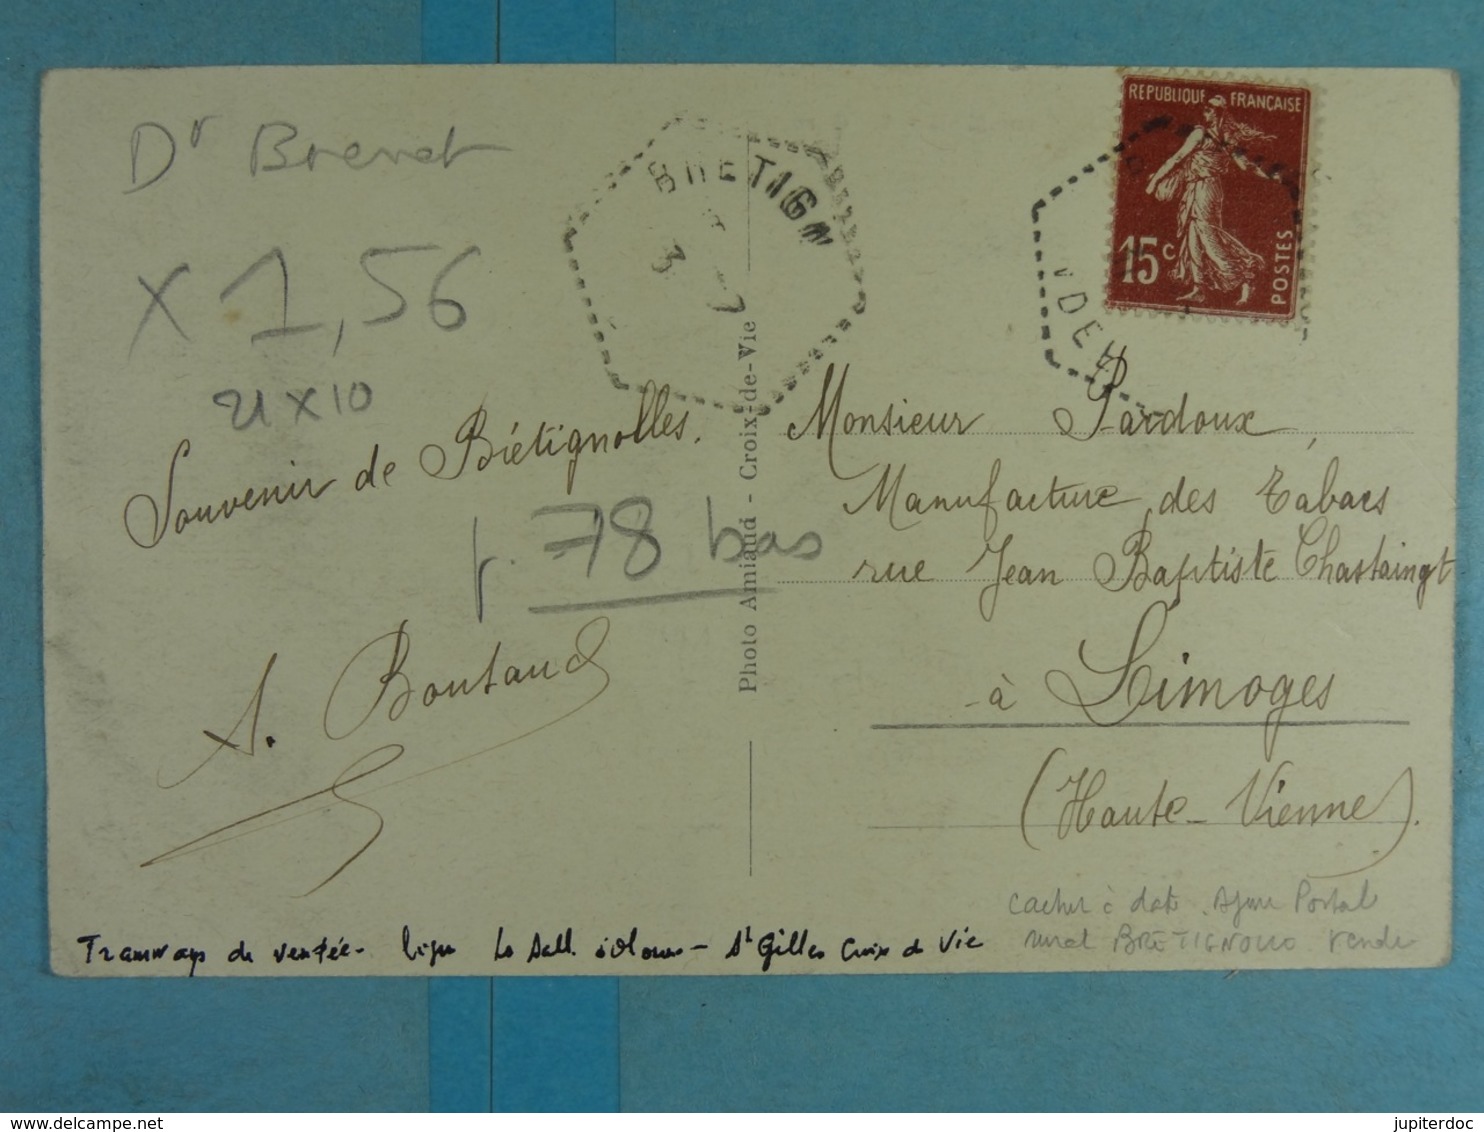 Dr Brenet
X 1,56
21 X 10
BRETIGN
3 - 7
Souvenir de Brétignolles.
p. 78 bas
A. Boutaud
Photo Amiaud - Croix-de-Vie
REPUBLIQUE FRANÇAISE
15c
POSTES
VDEE
Monsieur Pardoux,
Manufacture des Tabacs
rue Jean Baptiste Chastaingt
à Limoges
(Haute-Vienne).
cachet à date Agence Postal
rural BRETIGNOLLES Vendée
Tramways de Vendée - ligne Les Sables d'Olonne - St Gilles Croix de Vie
delcampe.net
jupiterdoc